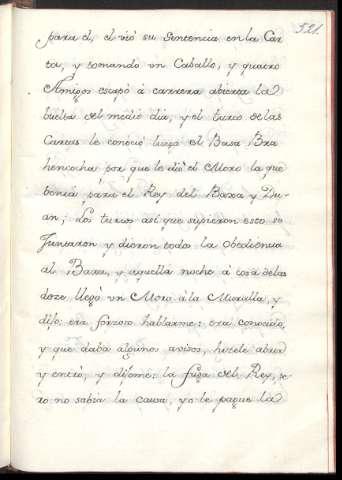 521.
para él, el vió su Sentencia en la Car
ta, y tomando un Caballo, y quatro
Amigos escapó á carrera abierta la
buelta del medio dia, y el turco de las
Cartas le conoció luego el Basa Bra
hencocha por que le dió el Moro la que
benia para el Rey del Baxa y Du-
an; Los turcos así que supieron esto se
Juntaron y dieron todos la Obediencia
al Baxa, y aquella noche á cosa de las
doze, llegó un Moro á la Muralla, y
dijo: era forzoso hablarme: era conocido,
y que daba algunos avisos, hizele abrir
y entró, y dijome: la fuga del Rey, pe
ro no sabia la causa, yo le pague la